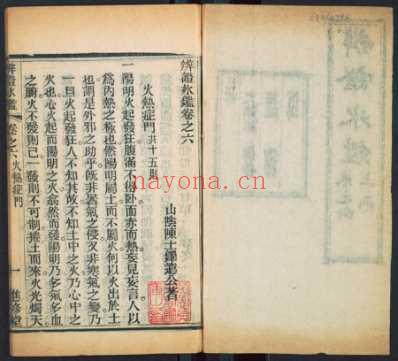 辨證冰鑑卷之六
火熱症門 共十五則
山陰陳士鐸遠公著
一陽明火起發狂腹滿不得臥面赤而熱妄見妄言人以
為內熱之極也然陽明屬土而不屬火何以火出於土
也謂是外邪之助乎旣非暑氣之侵又非寒氣之變乃
一旦火起發狂人不知其故不知土中之火乃心中之
火也心火起而陽明之火翕然而發陽明乃多氣多血
之腑火不發則已一發則不可制捲土而來火光燭天
辨證冰鑑 卷之六 火熱症門 一
nayona.cn